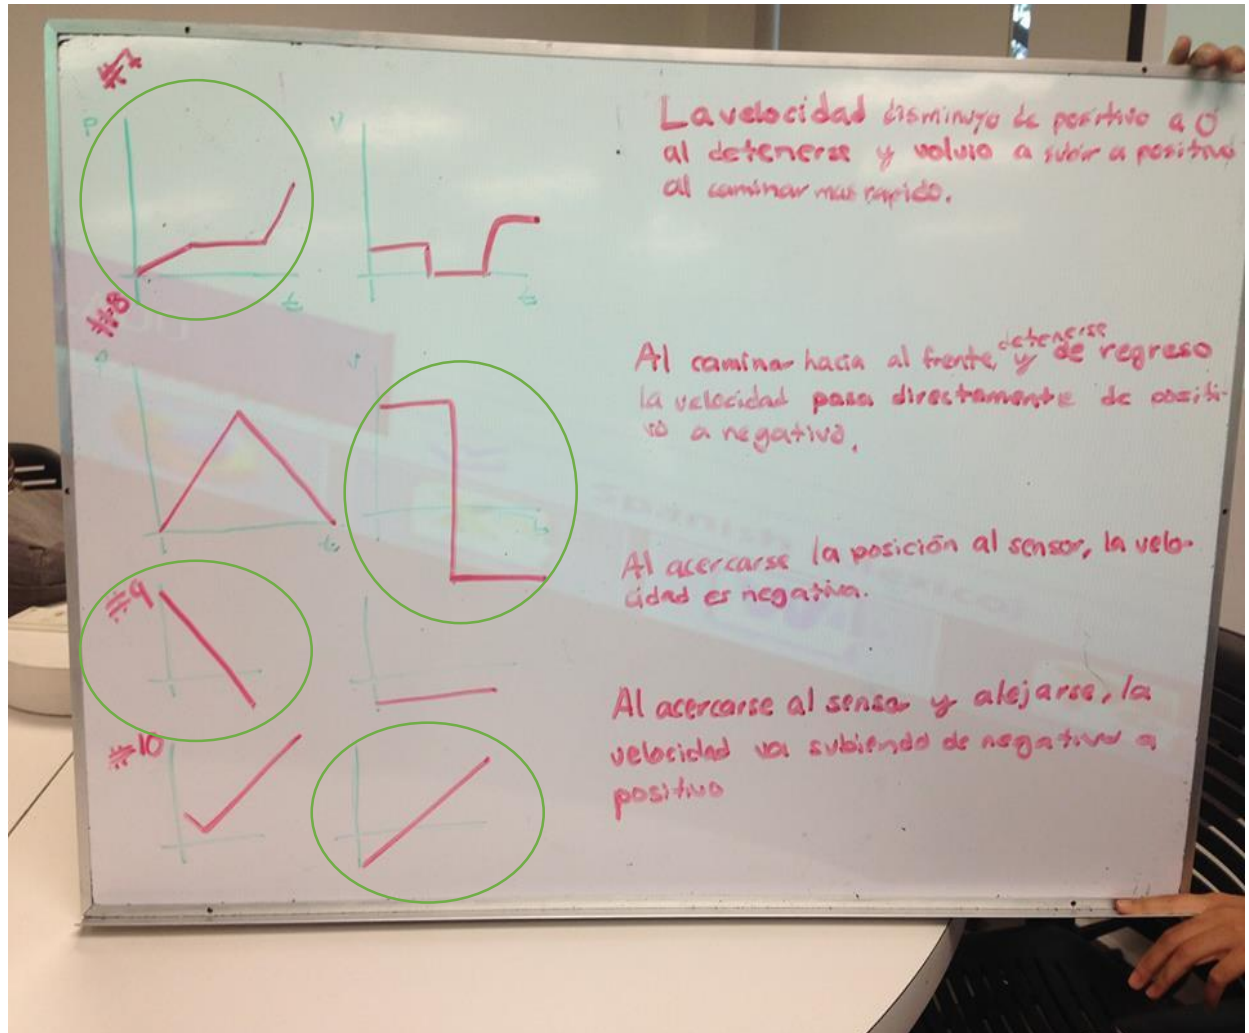 #7
P
V
t
t
La velocidad disminuyo de positivo a 0
al detenerse y volvio a subir a positivo
al caminar mas rapido.
#8
V
t
t
Al caminar hacia al frente, detenerse y de regreso
la velocidad pasa directamente de positi-
vo a negativo.
#9
Al acercarse la posición al sensor, la velo-
cidad es negativa.
#10
Al acercarse al sensor y alejarse, la
velocidad va subiendo de negativo a
positivo